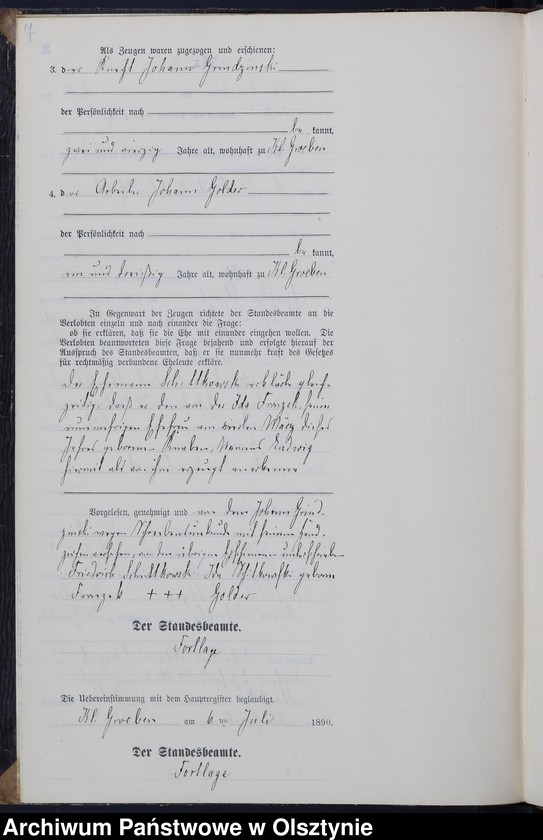 7
Als Zeugen waren zugezogen und erschienen:
3. der Knecht Johann Grindzinski
der Persönlichkeit nach
be kannt,
zwei und vierzig Jahre alt, wohnhaft zu Kl. Groeben
4. der Arbeiter Johann Golder
der Persönlichkeit nach
be kannt,
ein und dreißig Jahre alt, wohnhaft zu Kl. Groeben
In Gegenwart der Zeugen richtete der Standesbeamte an die
Verlobten einzeln und nach einander die Frage:
ob sie erklären, daß sie die Ehe mit einander eingehen wollen. Die
Verlobten beantworteten diese Frage bejahend und erfolgte hierauf der
Ausspruch des Standesbeamten, daß er sie nunmehr kraft des Gesetzes
für rechtmäßig verbundene Eheleute erkläre.
Der Ehemann erklärte gleich-
zeitig, daß er den von der Ida Franzek, seiner
nunmehrigen Ehefrau am März dieses
Jahres geborenen Knaben, Namens Ludwig
hiermit als von ihm erzeugt anerkenne
Vorgelesen, genehmigt und von dem Johann Grind-
zinski wegen Schreibensunkunde mit seinem Hand-
zeichen versehen, von den übrigen Erschienenen unterschrieben
Friedrich Ida geborene
Franzek + + + Golder
Der Standesbeamte.
Fortlage
Die Uebereinstimmung mit dem Hauptregister beglaubigt.
Kl. Groeben am 6 ten Juli 1890.
Der Standesbeamte.
Fortlage
Archiwum Państwowe w Olsztynie